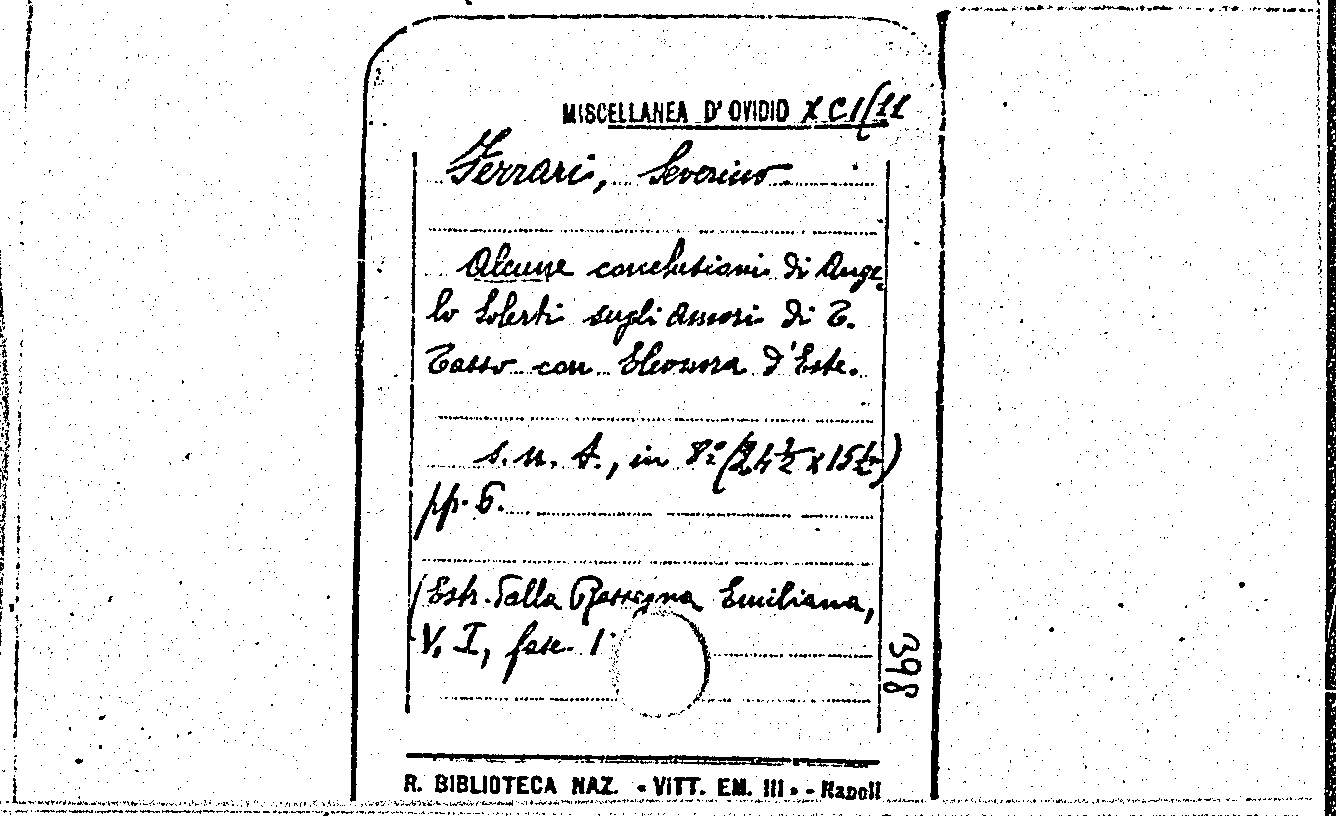 MISCELLANEA D'OVIDIO XCI/11
Ferrari, Severino
Alcune conclusioni di Ange-
lo Solerti sugli Amori di T.
Tasso con Eleonora d'Este.
s. n. t., in 8º (24 ½ x 15 ½)
pp. 6.
(Estr. dalla Rassegna Emiliana,
V. I, fasc. 1
398
R. BIBLIOTECA NAZ. « VITT. EM. III » - Napoli